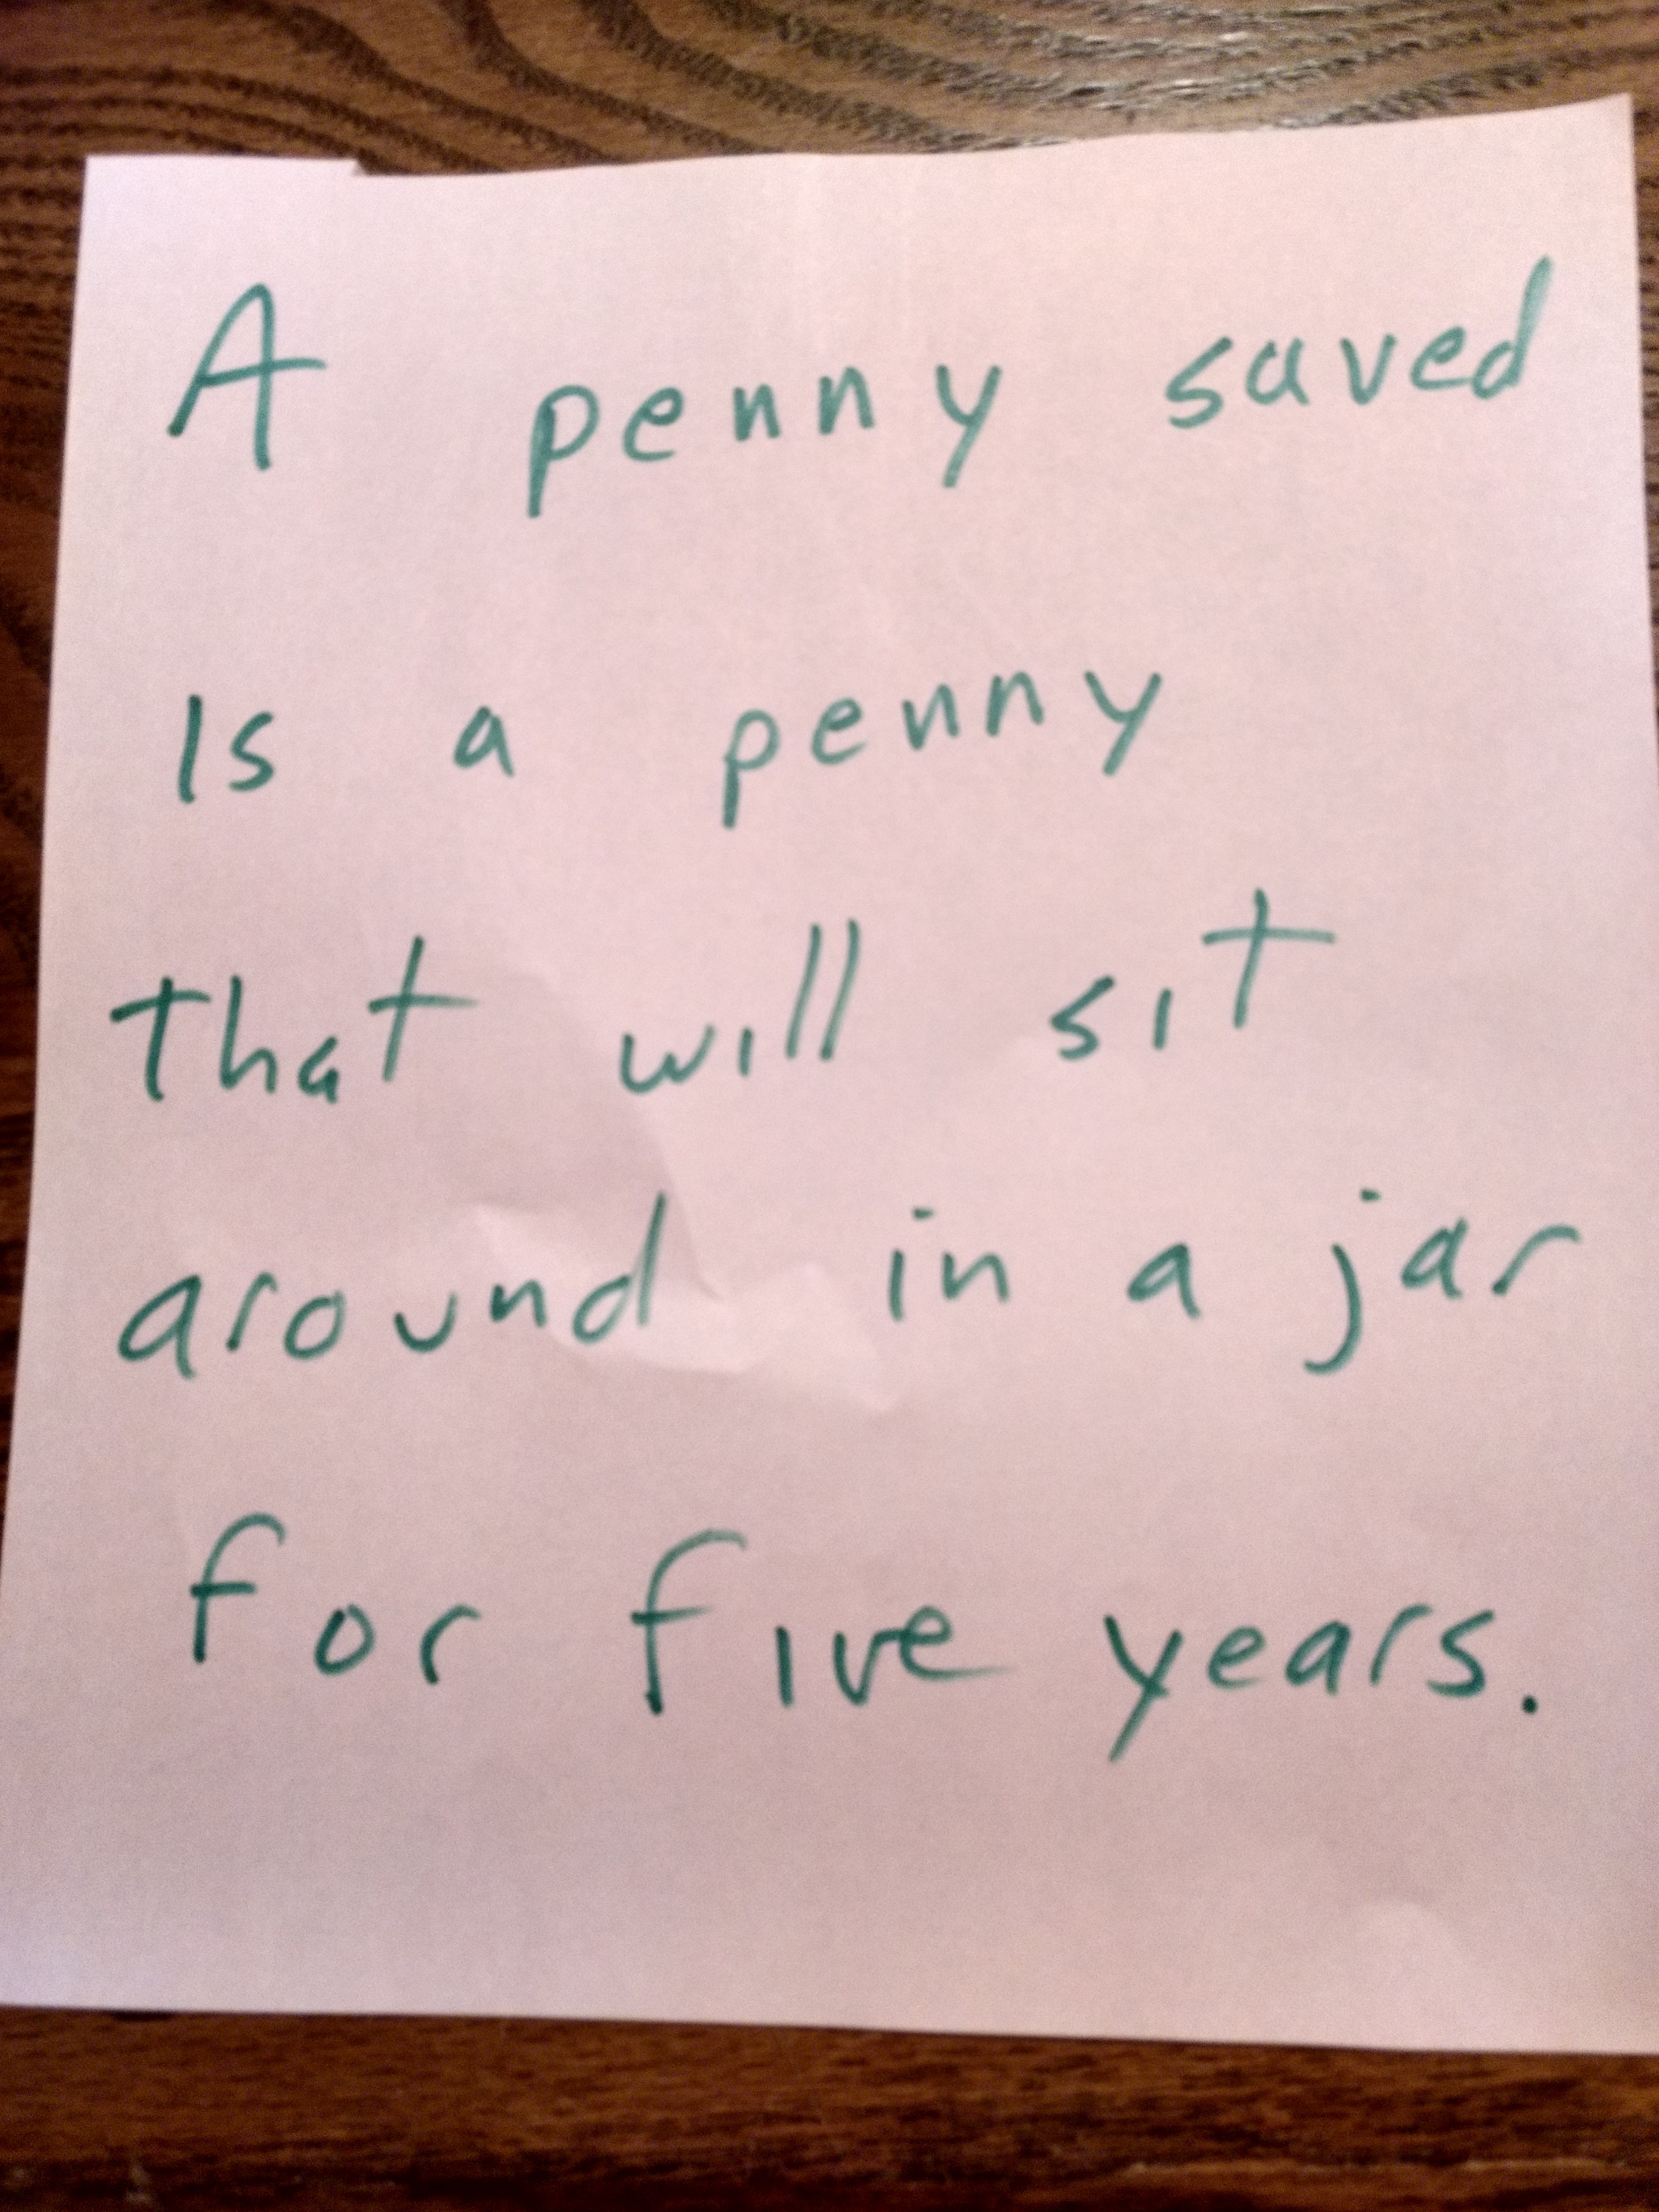 A penny saved
is a penny
that will sit
around in a jar
for five years.